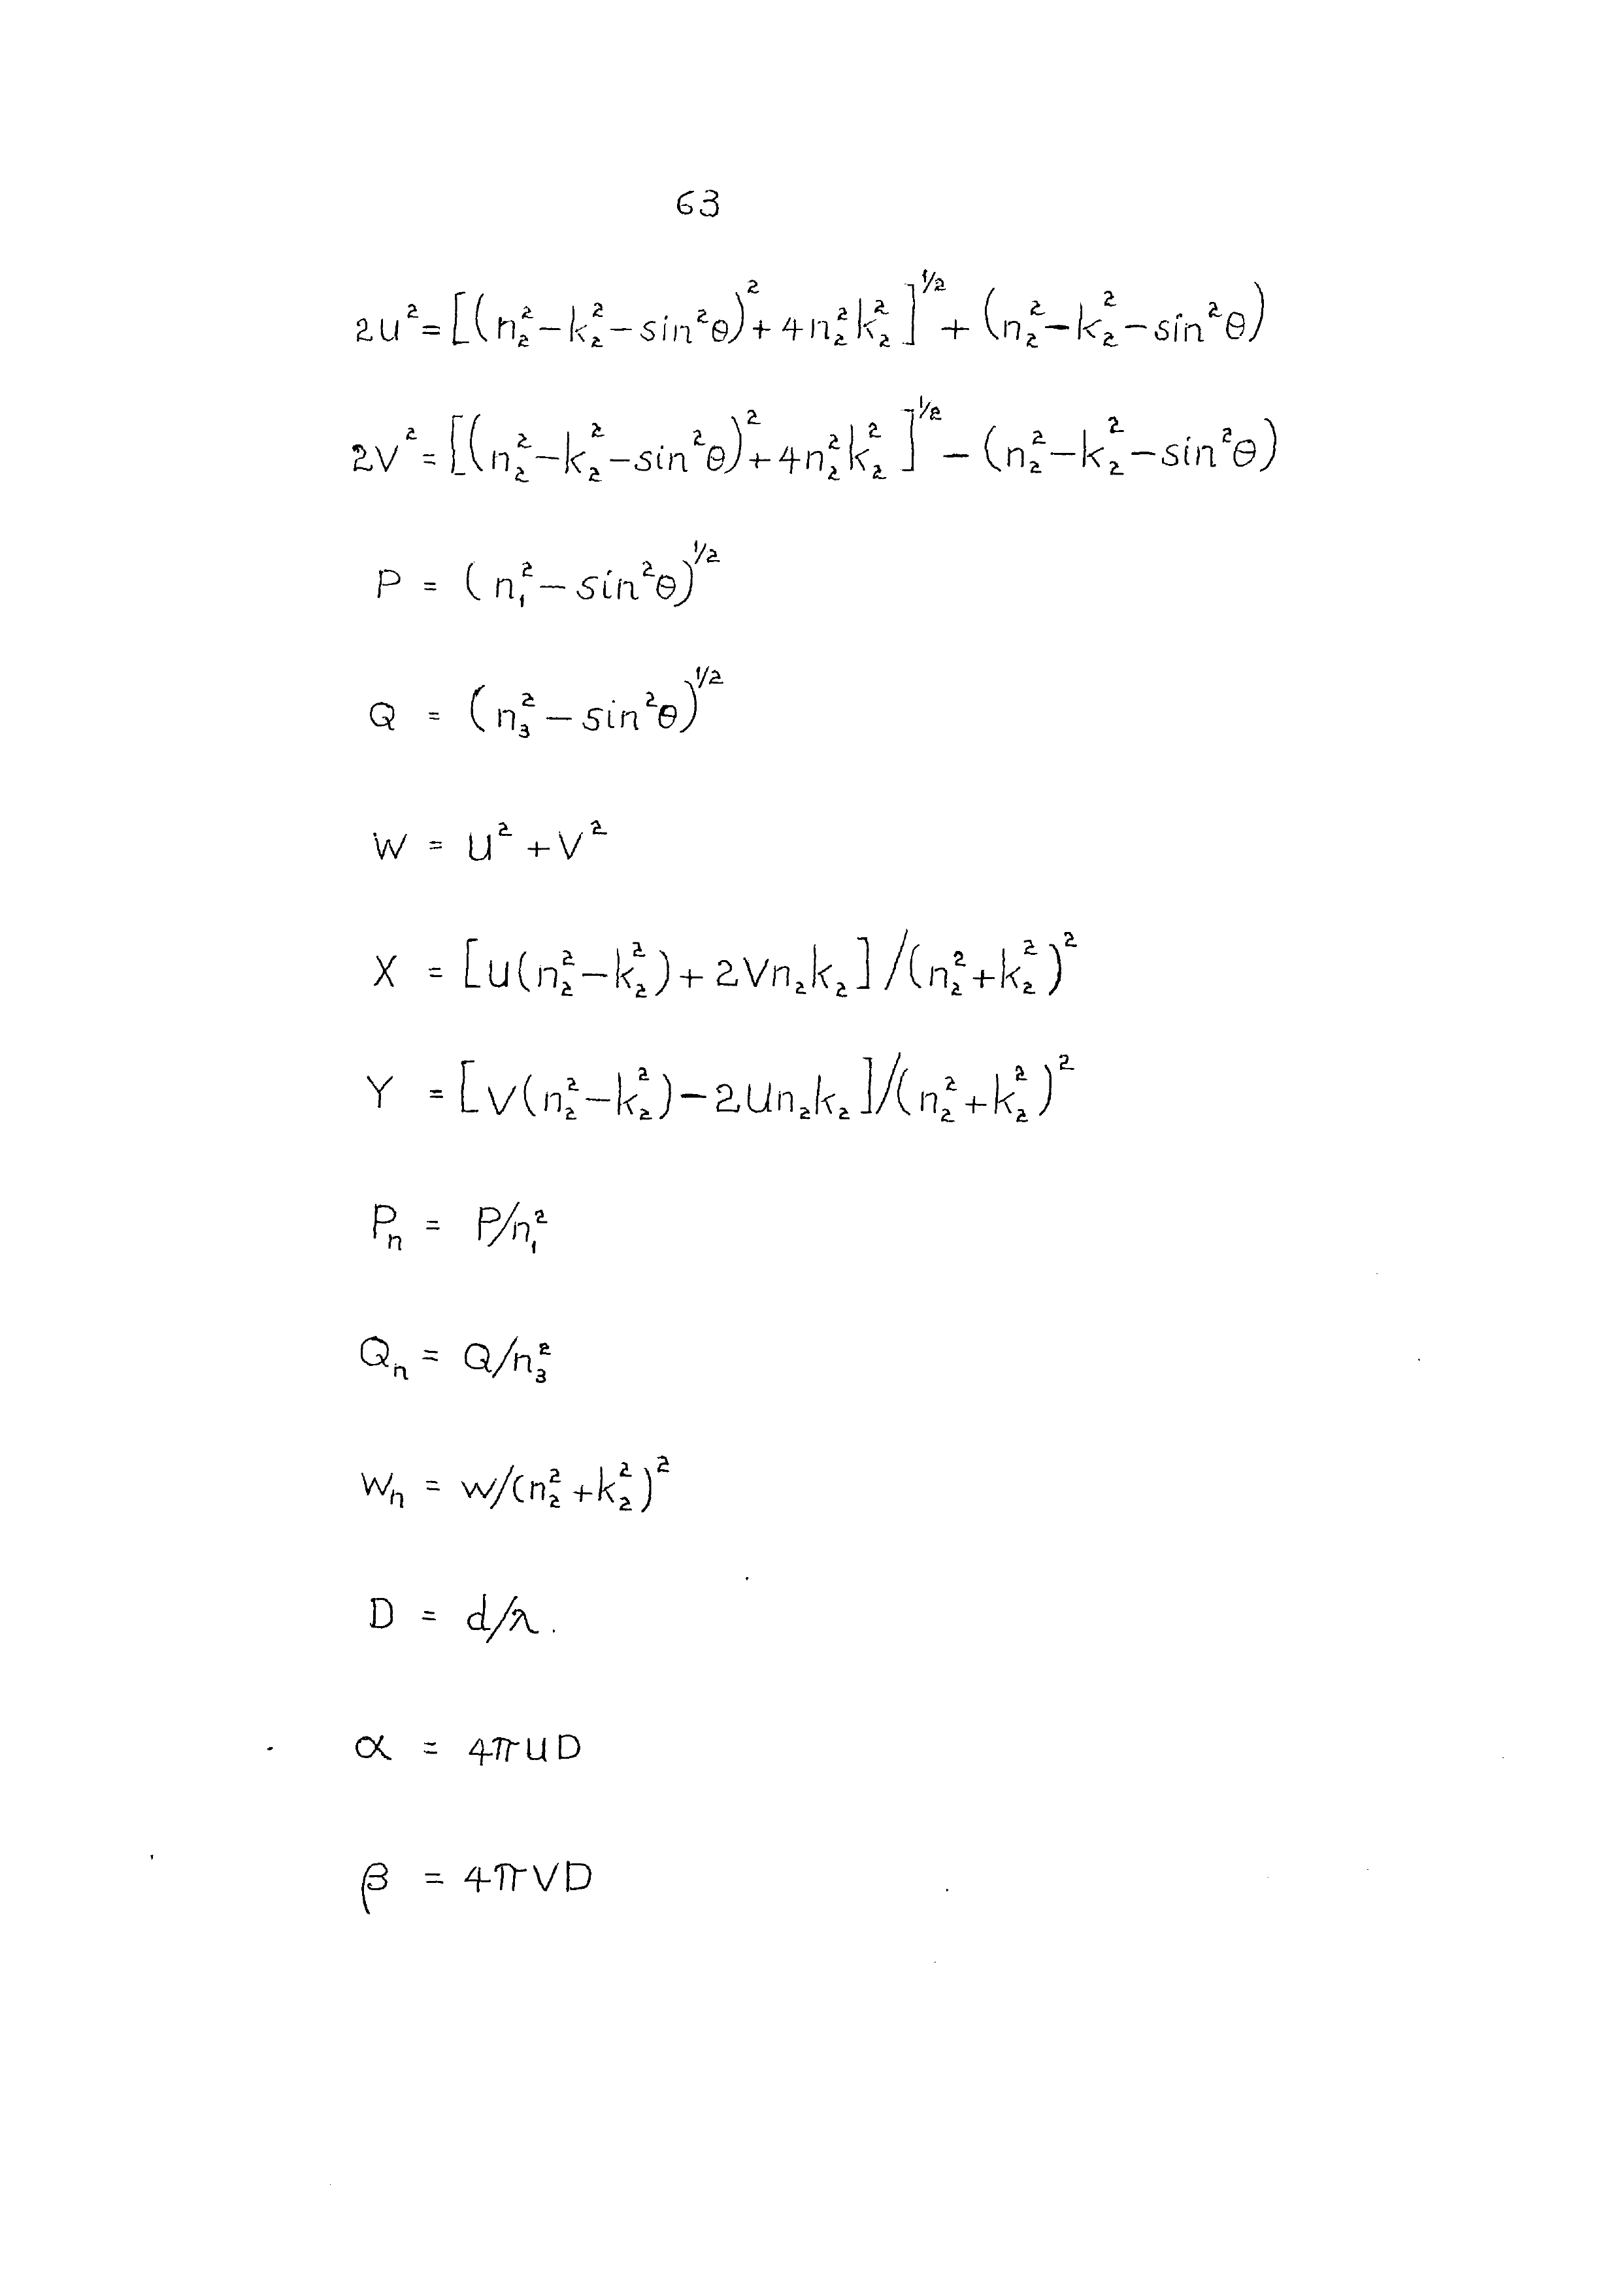 63
2u² = [(n₂² − k₂² − sin²θ)² + 4n₂²k₂²]^{1/2} + (n₂² − k₂² − sin²θ)
2V² = [(n₂² − k₂² − sin²θ)² + 4n₂²k₂²]^{1/2} − (n₂² − k₂² − sin²θ)
P = (n₁² − sin²θ)^{1/2}
Q = (n₃² − sin²θ)^{1/2}
W = U² + V²
X = [U(n₂² − k₂²) + 2Vn₂k₂]/(n₂² + k₂²)²
Y = [V(n₂² − k₂²) − 2Un₂k₂]/(n₂² + k₂²)²
Pₙ = P/n₁²
Qₙ = Q/n₃²
Wₙ = W/(n₂² + k₂²)²
D = d/λ.
α = 4πUD
β = 4πVD